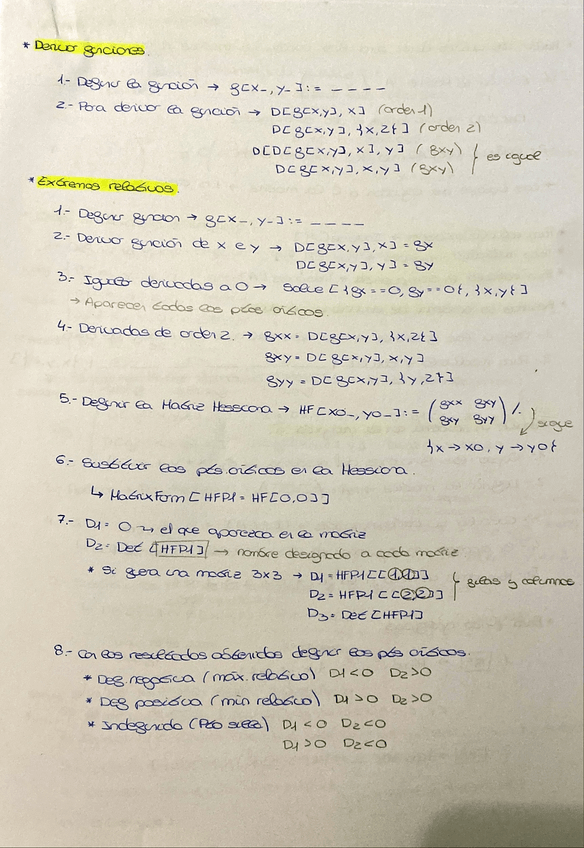 * Derivar funciones.
1.- Definir la función → f[x_, y_]:= ----
2.- Para derivar la función → D[f[x,y], x] (orden 1)
D[f[x,y], {x,2}] (orden 2)
D[D[f[x,y], x], y] (fxy)
D[f[x,y], x,y] (fxy) } es igual
* Extremos relativos.
1.- Definir función → f[x_, y_]:= ----
2.- Derivar función de x e y → D[f[x,y], x] = fx
D[f[x,y], y] = fy
3.- Igualar derivadas a 0 → Solve [{fx==0, fy==0}, {x,y}]
→ Aparecen todos los ptos críticos.
4.- Derivadas de orden 2. → fxx = D[f[x,y], {x,2}]
fxy = D[f[x,y], x,y]
fyy = D[f[x,y], {y,2}]
5.- Definir la Matriz Hessiana → HF[x0_, y0_]:= (fxx fxy
fxy fyy) /. sigue
{x → x0, y → y0}
6.- Sustituir los ptos críticos en la Hessiana.
↳ MatrixForm [HFP1 = HF[0,0]]
7.- D1 = 0 → el que aparezca en la matriz
D2 = Det [HFP1] → nombre designado a cada matriz
* Si fuera una matriz 3x3 → D1 = HFP1[[1,1]]
D2 = HFP1[[2,2]] } filas y columnas
D3 = Det [HFP1]
8.- Con los resultados obtenidos definir los ptos críticos.
* Def negativa (máx. relativo) D1<0 D2>0
* Def positiva (min relativo) D1>0 D2>0
* Indefinido (Pto silla) D1<0 D2<0
D1>0 D2<0